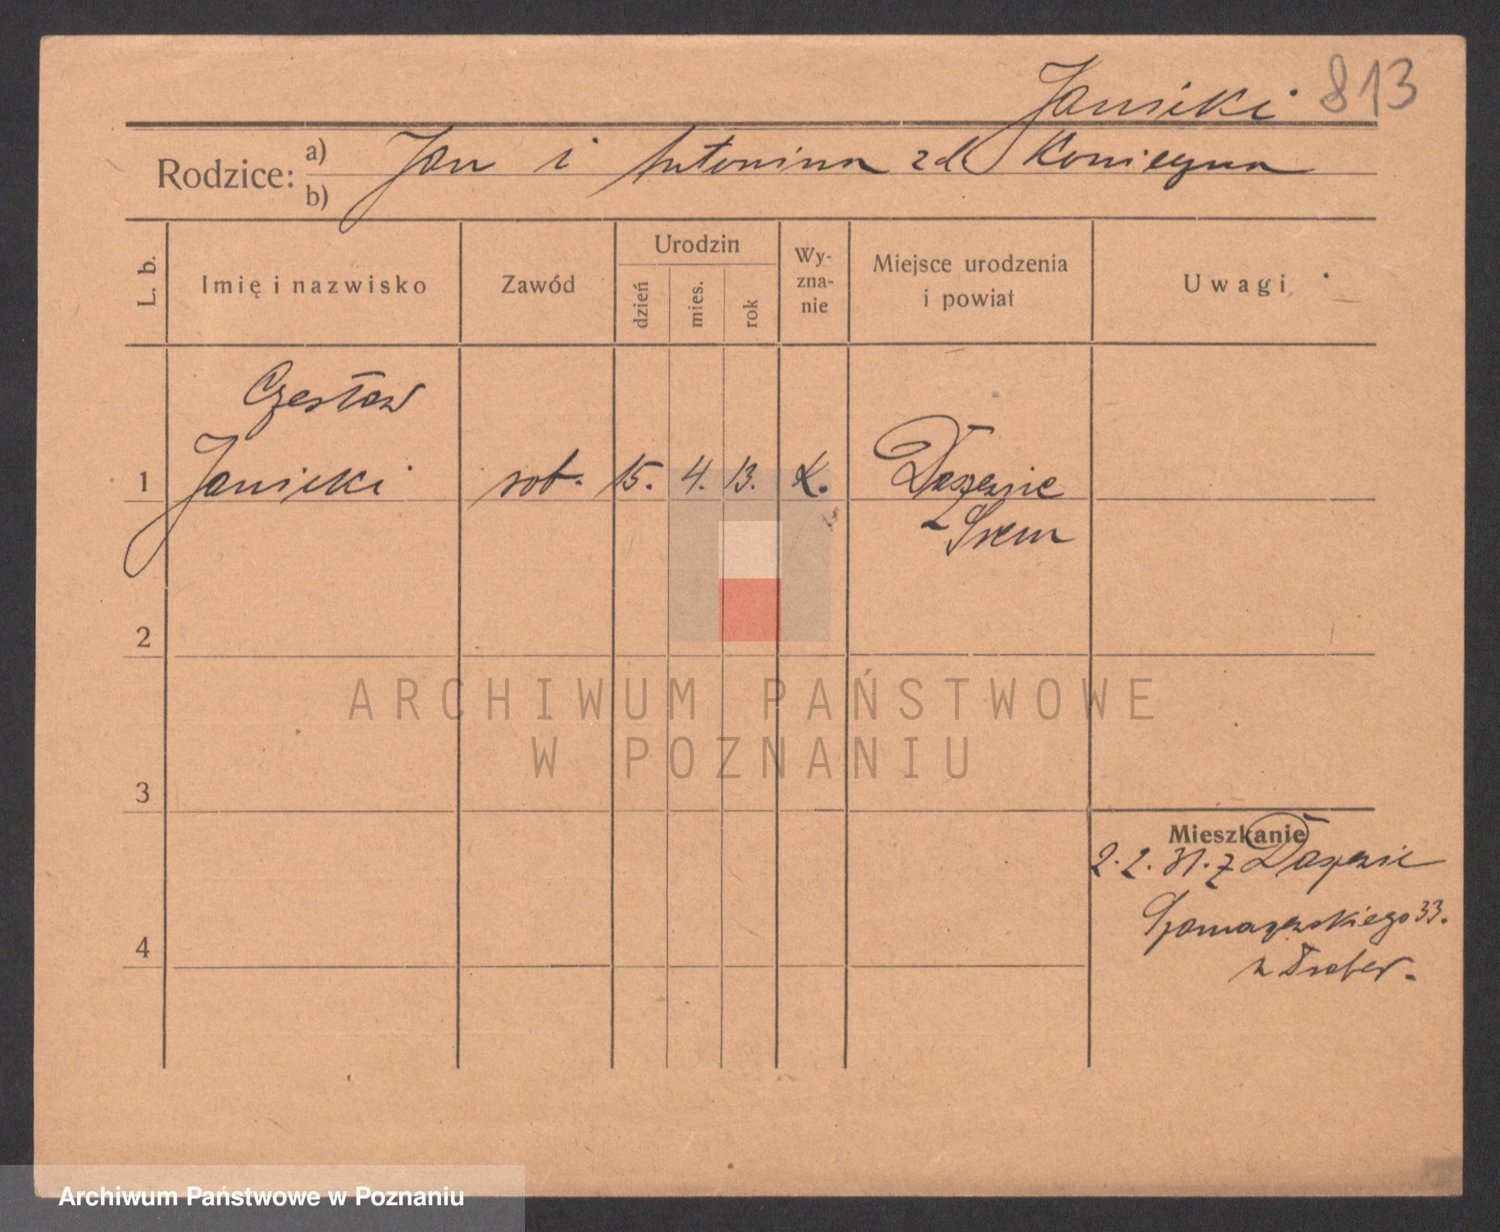 Janicki 813
Rodzice: a) Jan i Antonina zd. Konieczna
b)
L. b. Imię i nazwisko Zawód Urodzin dzień mies. rok Wyznanie Miejsce urodzenia i powiat Uwagi
Czesław
1 Janicki rob. 15. 4. 13.
Śrem
2
ARCHIWUM PAŃSTWOWE
W POZNANIU
3
Mieszkanie
2. 2. 31. z
33.
4
Archiwum Państwowe w Poznaniu